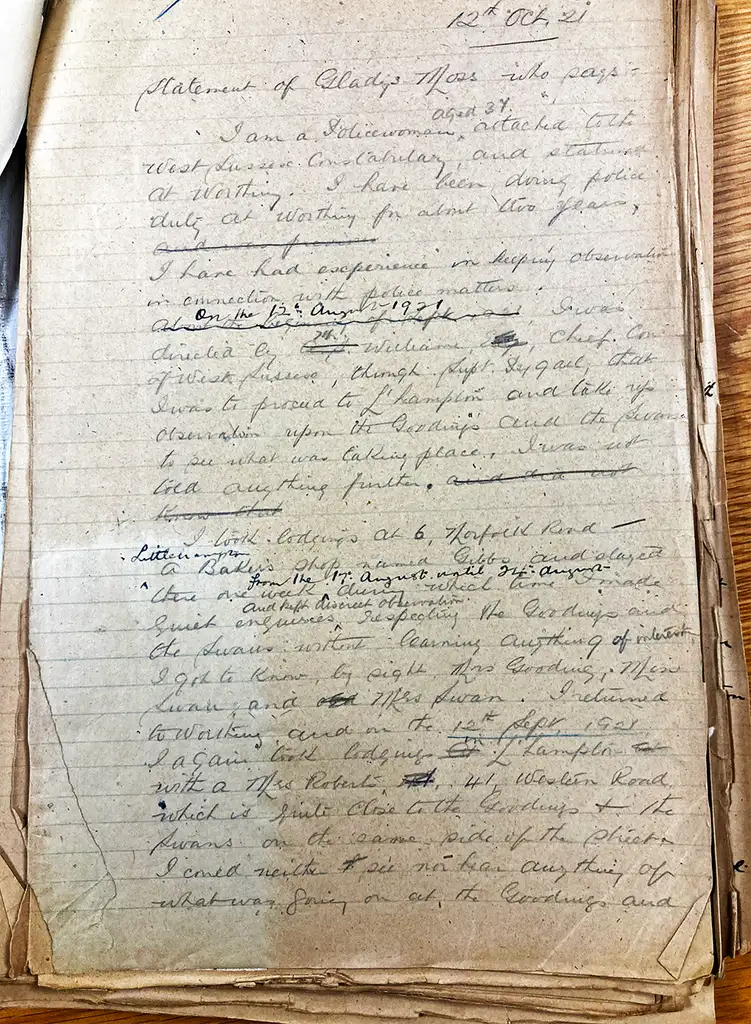 12th Oct. 21
Statement of Gladys Moss who says:-
aged 37.
I am a Policewoman, attached to the
West Sussex Constabulary, and stationed
at Worthing. I have been doing police
duty at Worthing for about two years,
and was
I have had experience in keeping observation
in connection with police matters.
On the 12th August 1921
About the beginning of Sept , I was
directed by William , Chief Con
of West Sussex, through Supt. , that
I was to proceed to L'hampton and take up
observation upon the Goodings and the Swans
to see what was taking place. I was not
told anything further. and did not
know that
I took lodgings at 6, Norfolk Road —
Littlehampton
a Bakers shop named Gibbs and stayed
From the August until August
there one week during which time I made
and kept discreet observation
quiet enquiries respecting the Goodings and
the Swans without learning anything of interest
I got to know, by sight Mrs Gooding, Miss
Swan, and Mrs Swan. I returned
to Worthing and on the 12th Sept. 1921
I again took lodgings in L'hampton
with a Mrs Roberts, 41, Western Road,
which is quite close to the Goodings & the
Swans on the same side of the street
I could neither see nor hear anything of
what was going on at the Goodings and